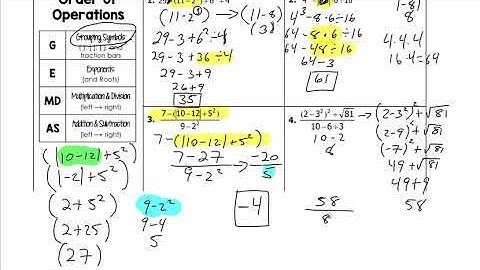 Order of
Operations
G
Grouping Symbols
fraction bars
E
Exponents
(and Roots)
MD
Multiplication & Division
(left → right)
AS
Addition & Subtraction
(left → right)
(|10-12|+5²)
(|-2|+5²)
(2+5²)
(2+25)
(27)
1.
(11-2
→(11-8)
(3)
29-3+6²÷4
29-3+36÷4
29-3+9
26+9
35
4³-8·6÷16
64-8·6÷16
64-48÷16
64-3
61
8)
4·4·4
16·4=64
3.
7-(|10-12|+5²)
9-2²
7-(|10-12|+5²)
7-27
9-2²
→
-20
5
-4
9-2²
9-4
5
4.
(2-3²)²+√81
10-6÷3
10-2
8
58
8
→(2-3²)²+√81
(2-9)²+√81
(-7)²+√81
49+√81
49+9
58